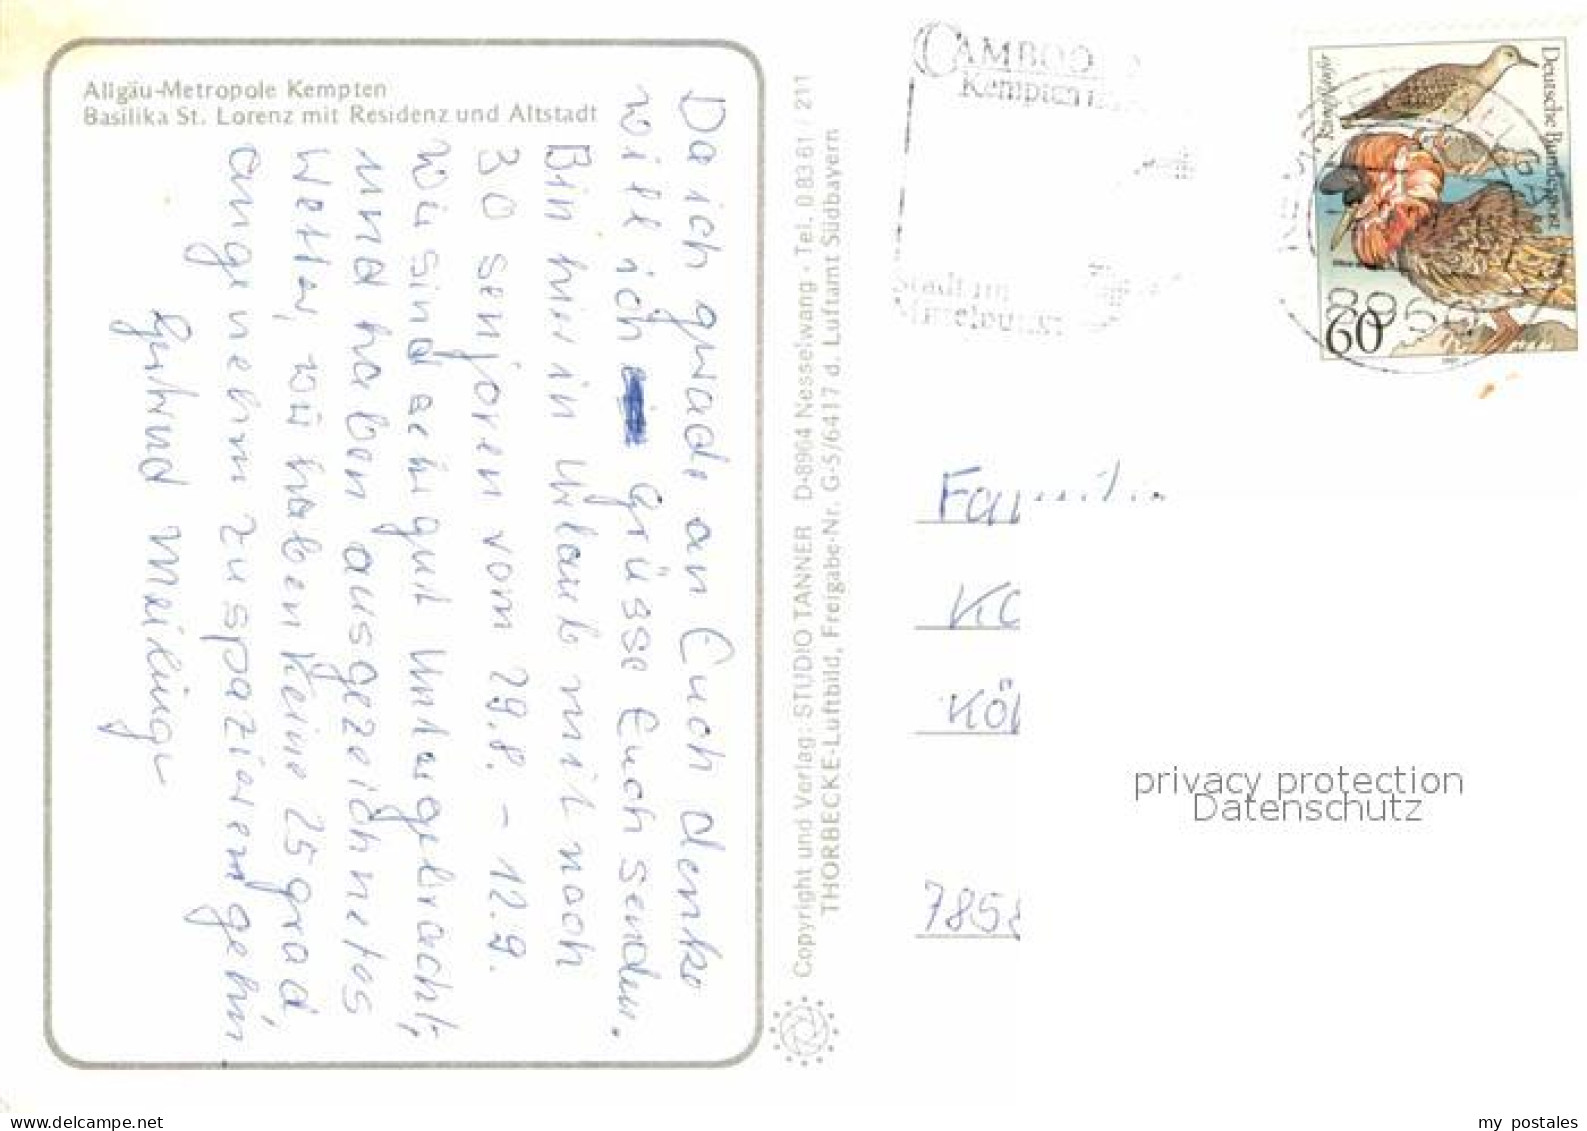 Allgäu-Metropole Kempten
Basilika St. Lorenz mit Residenz und Altstadt
Da ich grade an Euch denke
will ich Grüsse Euch senden.
Bin hier in Urlaub mit noch
30 senjoren vom 29.8. - 12.9.
Wir sind sehr gut Untergebracht,
und haben ausgezeichnetes
Wetter, wir haben keine 25 grad,
angenehm zu spazieren gehn
Copyright und Verlag: STUDIO TANNER D-8964 Nesselwang · Tel. 0 83 61 / 211
THORBECKE-Luftbild, Freigabe-Nr. G-5/6417 d. Luftamt Südbayern
CAMBOD
Kempten
Stadt im
Deutsche Bundespost
Kampfläufer
60
8960
Familie
KC
Köl
785
privacy protection
Datenschutz
www.delcampe.net
my_postales